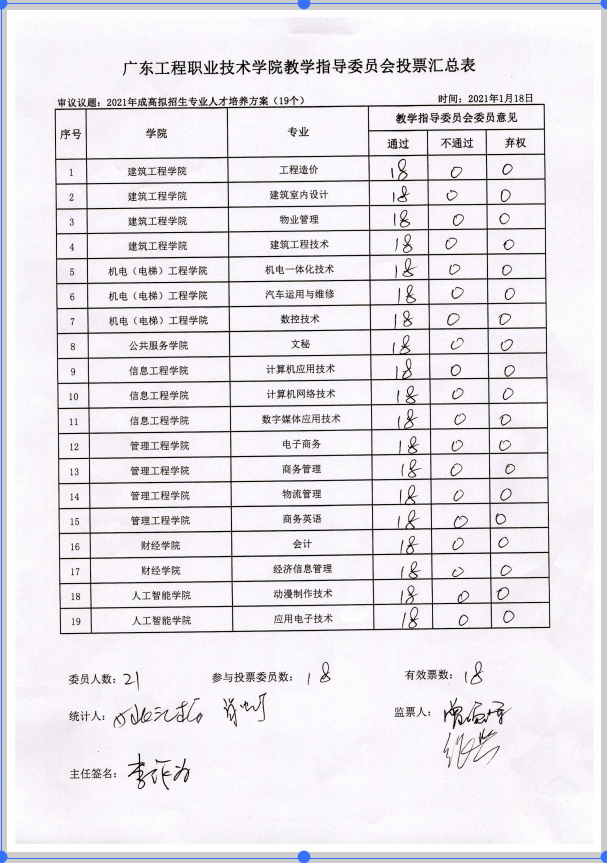 广东工程职业技术学院教学指导委员会投票汇总表
审议议题：2021年成高拟招生专业人才培养方案（19个） 时间：2021年1月18日
序号 学院 专业 教学指导委员会委员意见
通过 不通过 弃权
1 建筑工程学院 工程造价 18 0 0
2 建筑工程学院 建筑室内设计 18 0 0
3 建筑工程学院 物业管理 18 0 0
4 建筑工程学院 建筑工程技术 18 0 0
5 机电（电梯）工程学院 机电一体化技术 18 0 0
6 机电（电梯）工程学院 汽车运用与维修 18 0 0
7 机电（电梯）工程学院 数控技术 18 0 0
8 公共服务学院 文秘 18 0 0
9 信息工程学院 计算机应用技术 18 0 0
10 信息工程学院 计算机网络技术 18 0 0
11 信息工程学院 数字媒体应用技术 18 0 0
12 管理工程学院 电子商务 18 0 0
13 管理工程学院 商务管理 18 0 0
14 管理工程学院 物流管理 18 0 0
15 管理工程学院 商务英语 18 0 0
16 财经学院 会计 18 0 0
17 财经学院 经济信息管理 18 0 0
18 人工智能学院 动漫制作技术 18 0 0
19 人工智能学院 应用电子技术 18 0 0
委员人数：21 参与投票委员数：18 有效票数：18
统计人： 监票人：
主任签名：